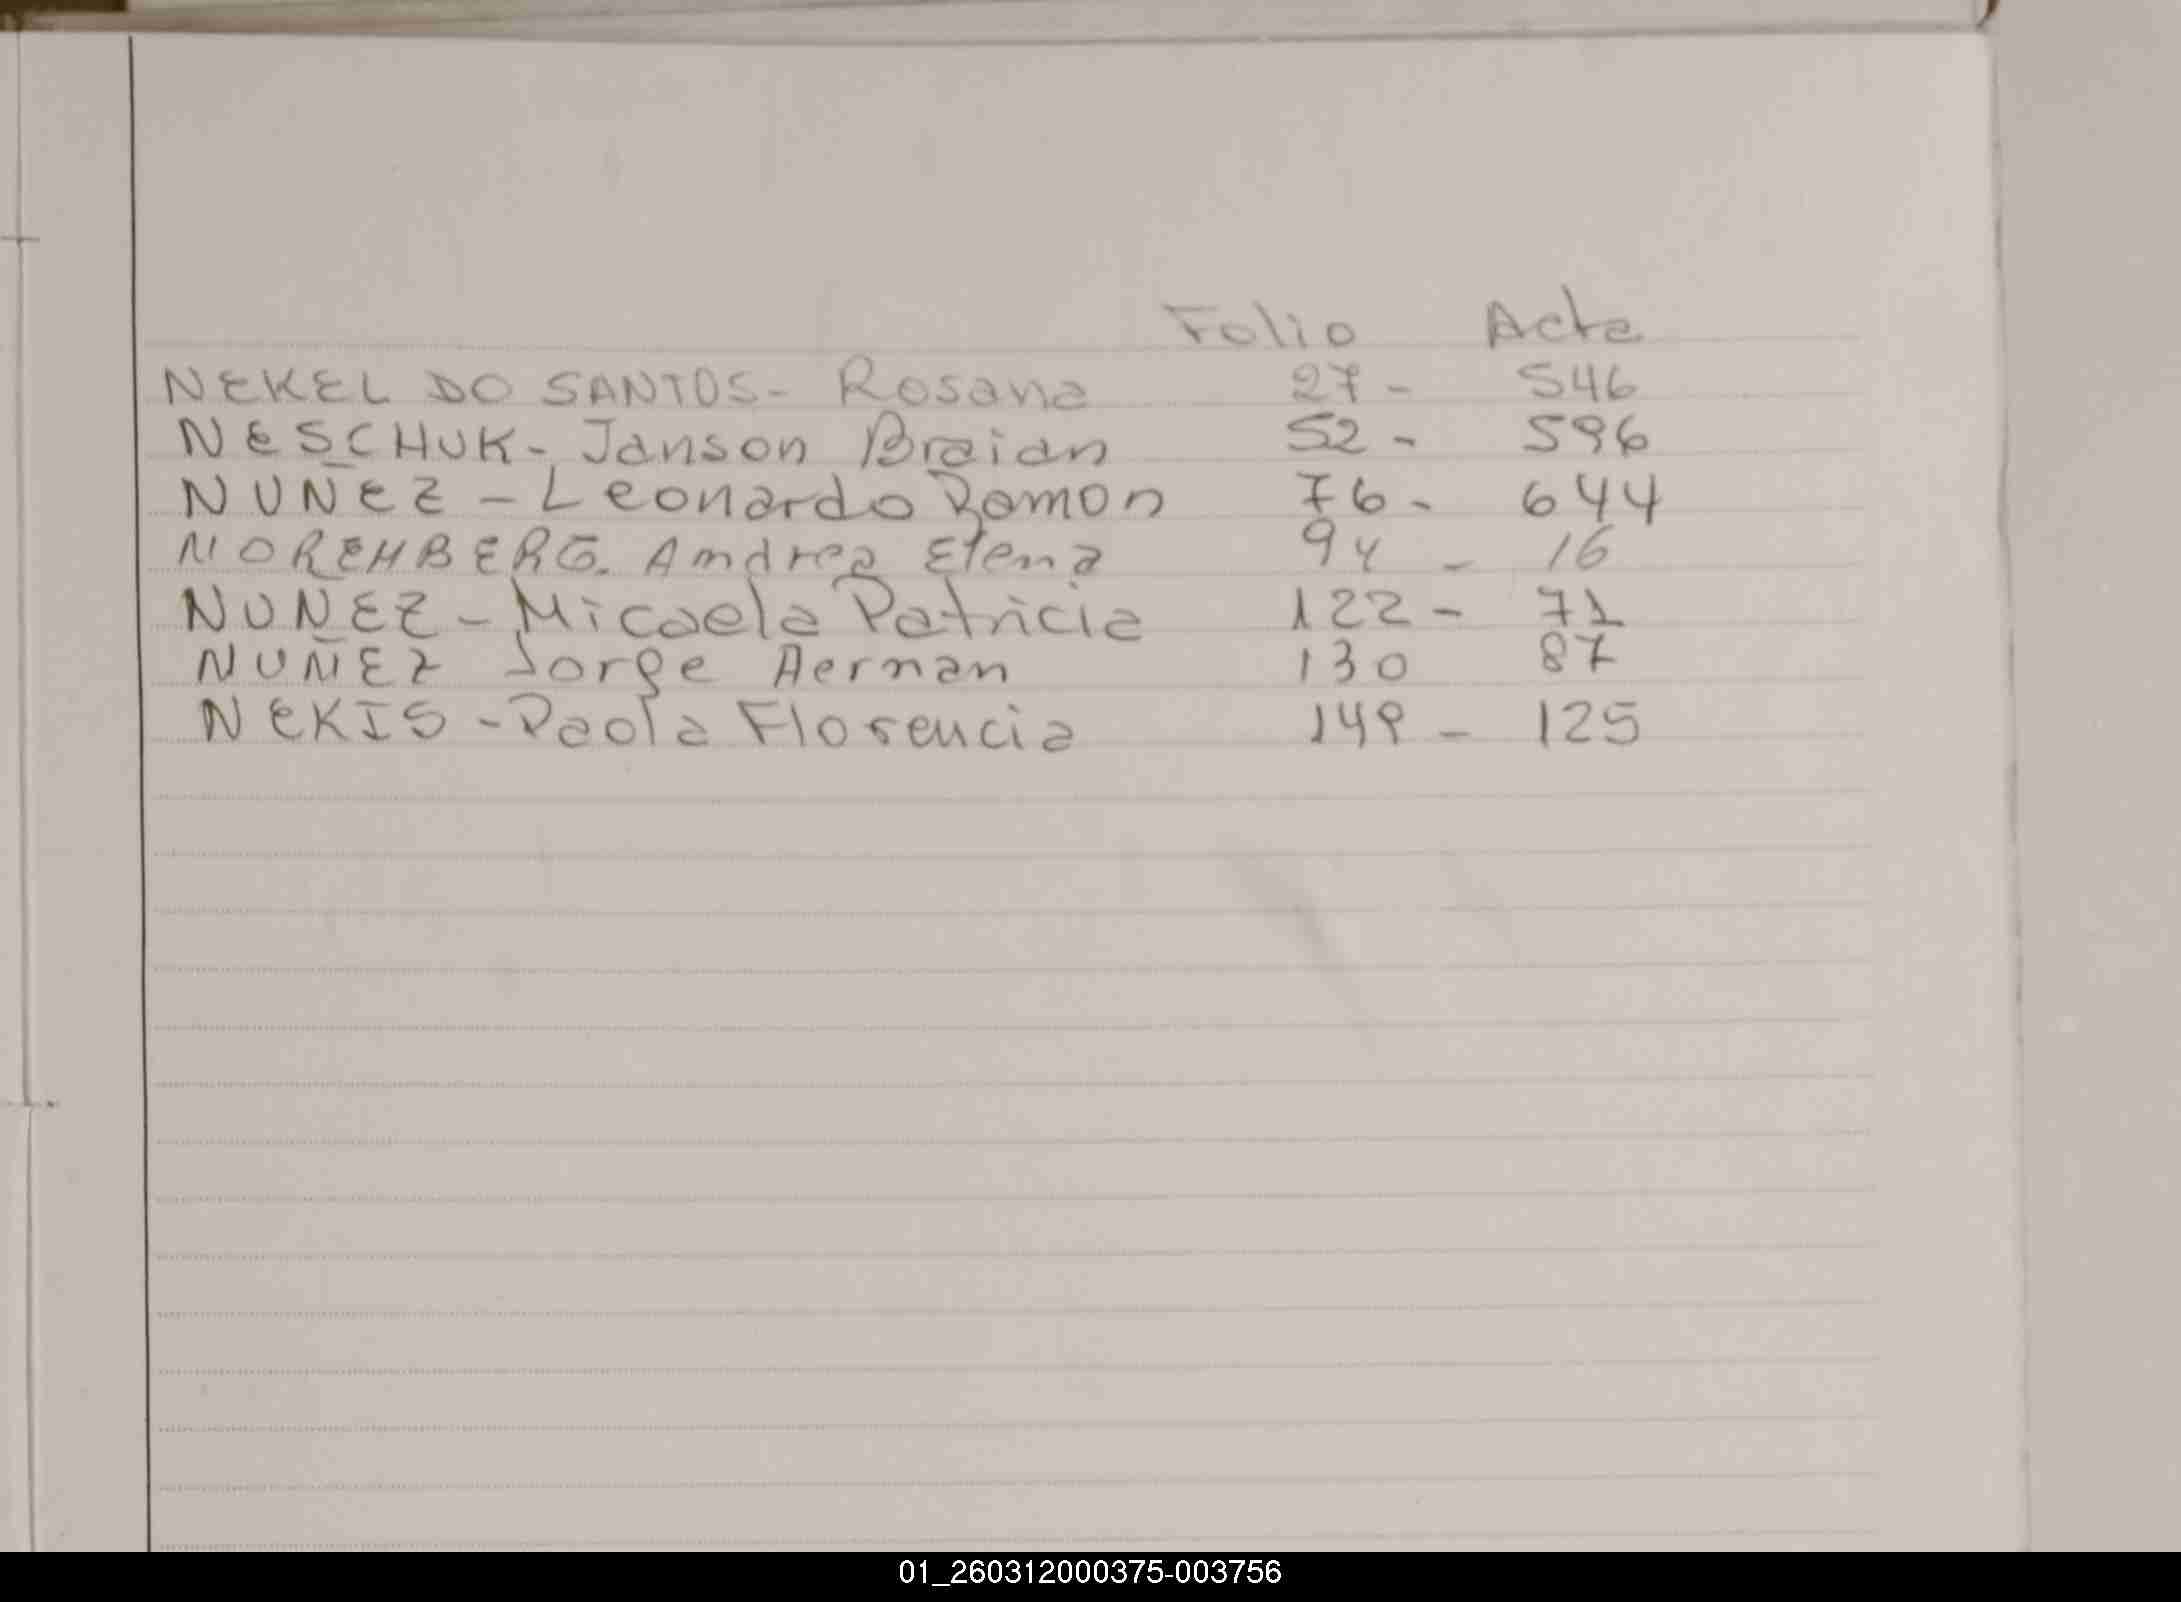 Folio Acta
NEKEL DO SANTOS - Rosana 27 - 546
NESCHUK - Janson Braian 52 - 596
NUÑEZ - Leonardo Ramon 76 - 644
NOREHBERG. Andrea Elena 94 - 16
NUÑEZ - Micaela Patricia 122 - 71
NUÑEZ Jorge Hernan 130 87
NEKIS - Paola Florencia 149 - 125
01_260312000375-003756